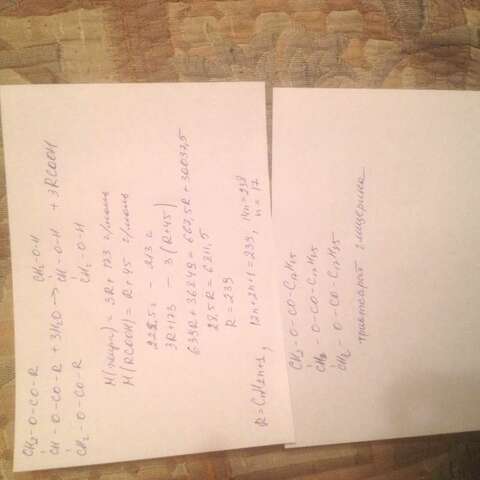 CH₂-O-CO-R CH₂-O-H
CH-O-CO-R + 3H₂O → CH-O-H + 3RCOOH
CH₂-O-CO-R CH₂-O-H
M(жира) = 3R + 173 г/моль
M(RCOOH) = R + 45 г/моль
222,5 г - 213 г
3R+173 - 3(R+45)
639R + 36849 = 667,5R + 30037,5
28,5R = 6811,5
R = 239
R = CnH2n+1, 12n+2n+1 = 239, 14n = 238
n = 17
CH₂-O-CO-C₁₇H₃₅
CH-O-CO-C₁₇H₃₅
CH₂-O-CO-C₁₇H₃₅
тристеарат глицерина